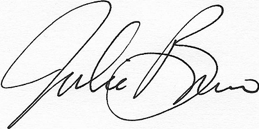 Julie Bruno